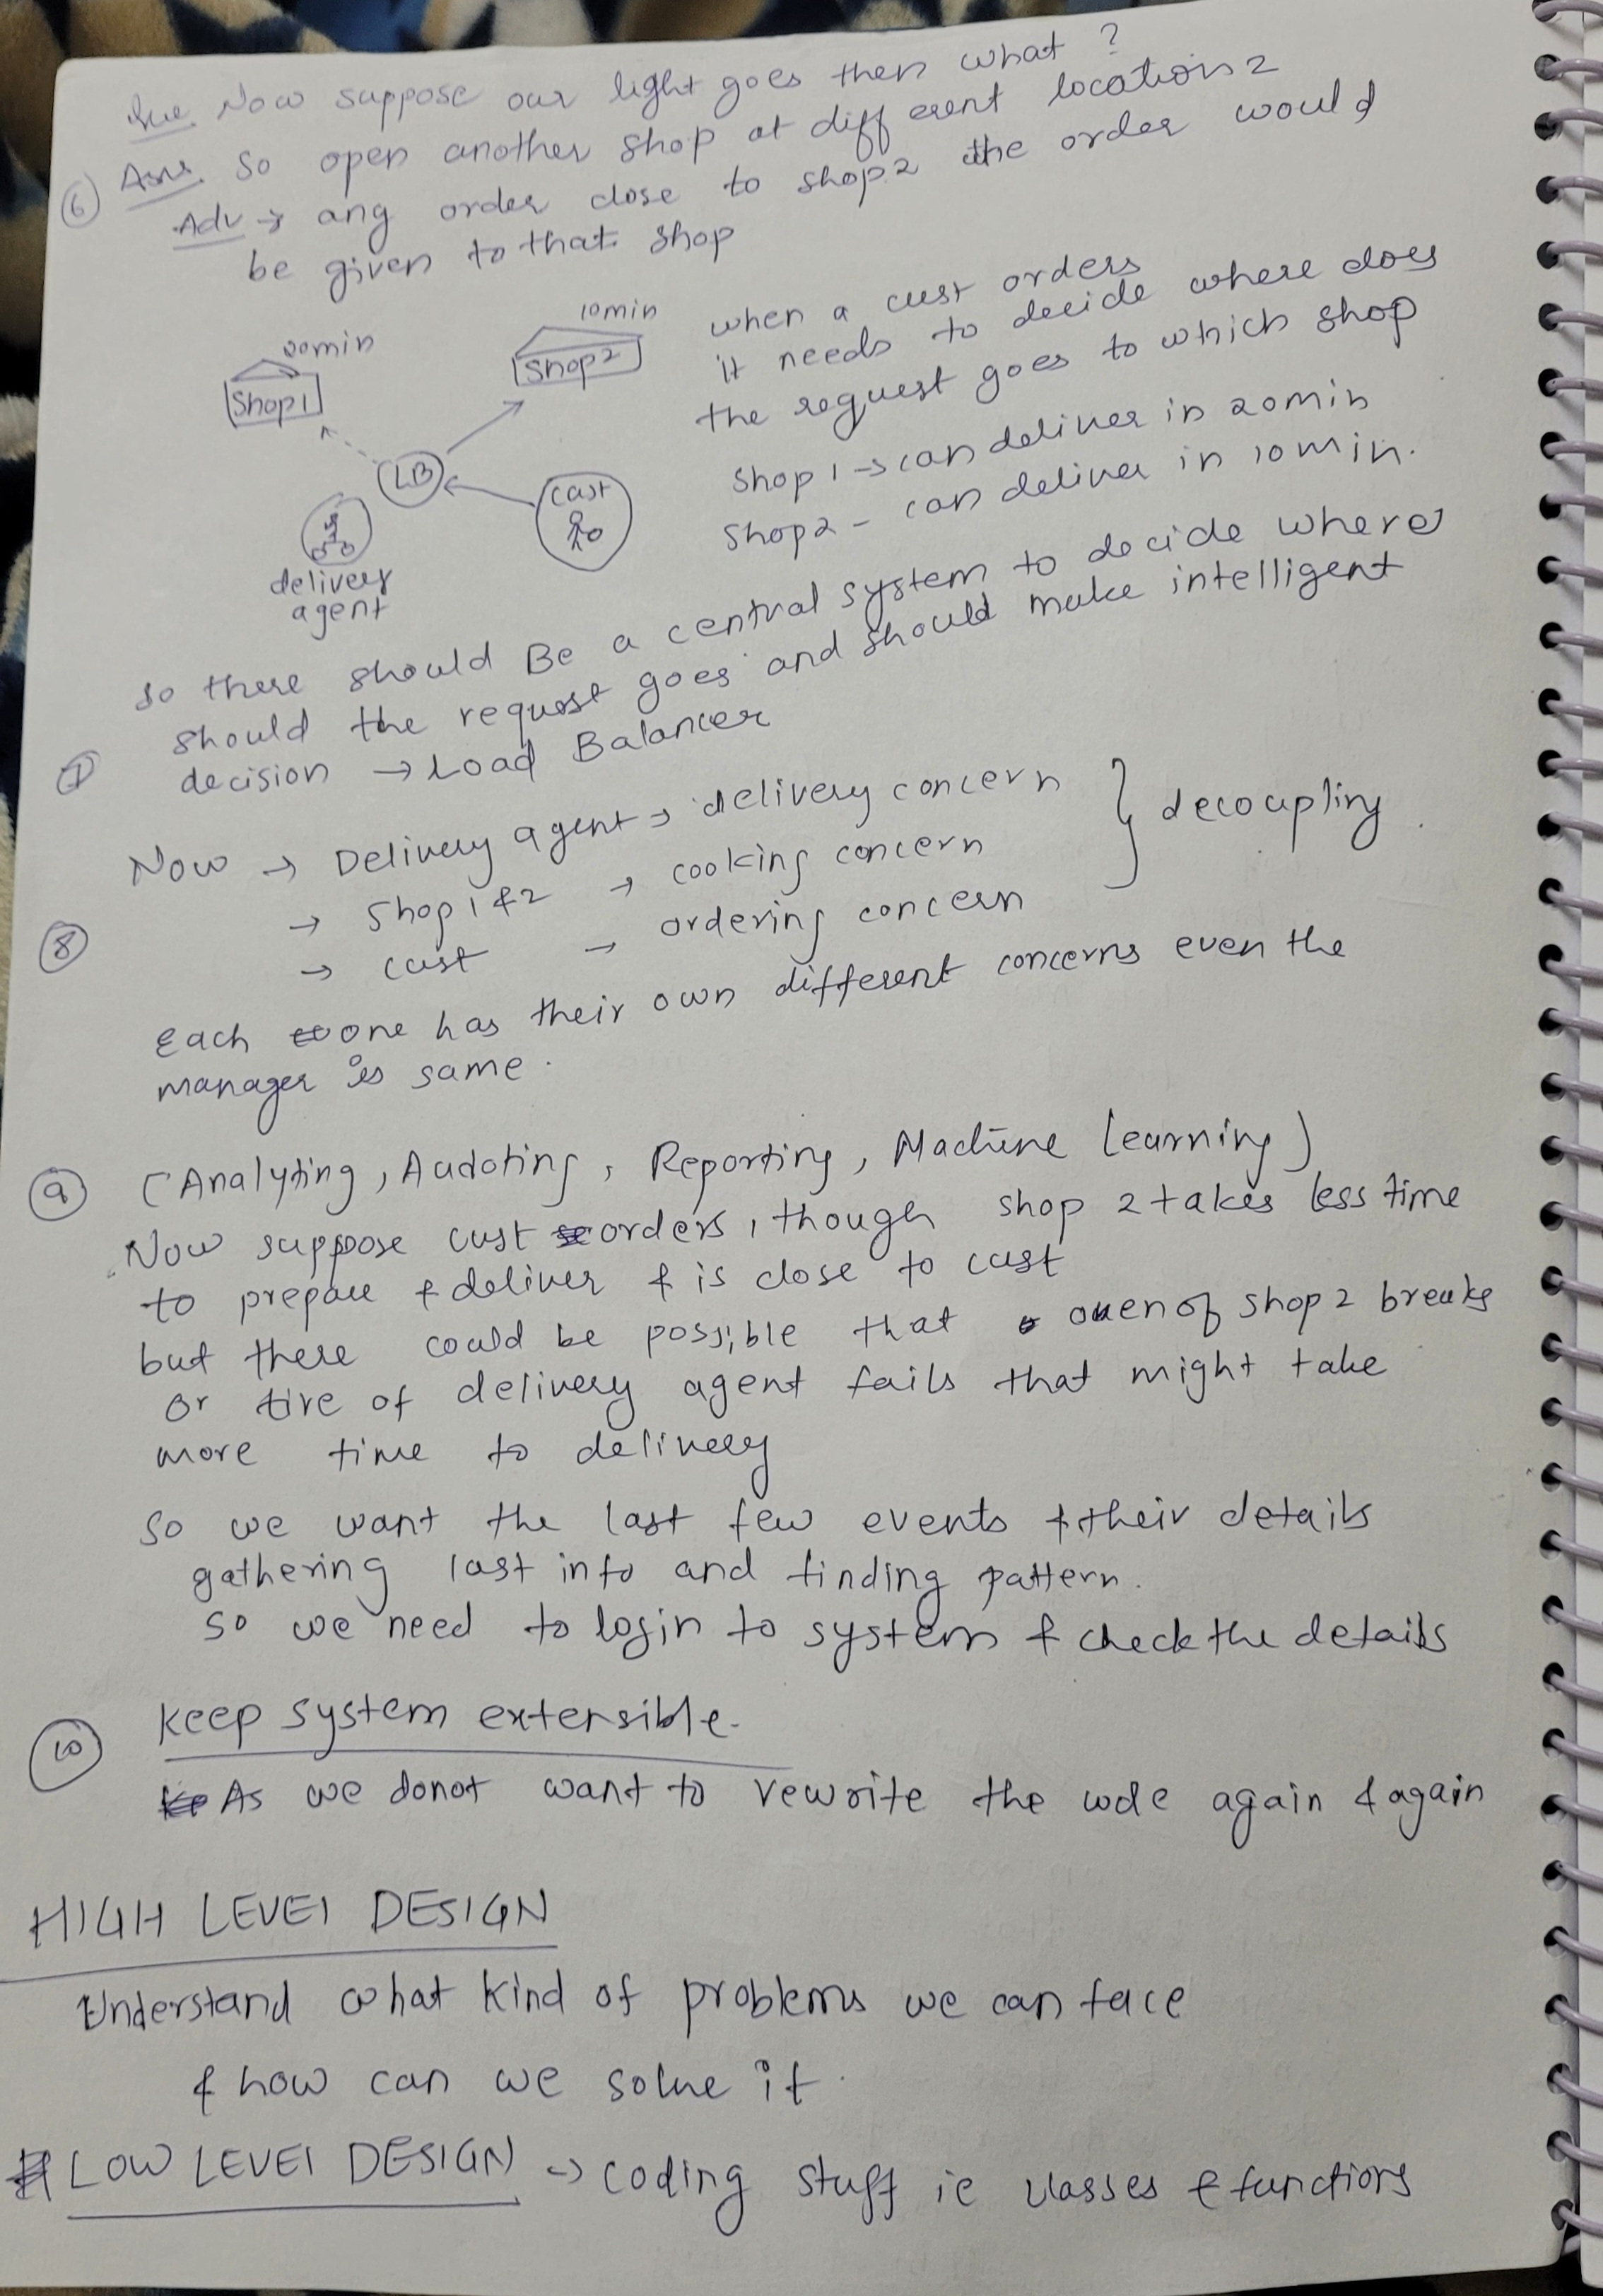 Que Now suppose our light goes then what ?
⑥ Ans. So open another shop at different location 2
Adv → any order close to shop 2 the order would
be given to that shop
20min
Shop1
10min
Shop2
LB
cust
delivery
agent
when a cust orders
it needs to decide where does
the request goes to which shop
Shop 1 → can deliver in 20min
Shop 2 - can deliver in 10 min.
So there should Be a central system to decide where
should the request goes and should make intelligent
⑦ decision → Load Balancer
Now → Delivery agent → delivery concern
→ Shop 1 & 2 → cooking concern
} decoupling
⑧ → cust → ordering concern
Each one has their own different concerns even the
manager is same.
⑨ (Analyting, Audoting, Reporting, Machine Learning)
Now suppose cust orders, though shop 2 takes less time
to prepare & deliver & is close to cust
but there could be possible that oven of shop 2 breaks
or tire of delivery agent fails that might take
more time to delivery
So we want the last few events & their details
gathering last info and finding pattern.
So we need to login to system & check the details
⑩ Keep system extensible.
As we donot want to rewrite the code again & again
HIGH LEVEL DESIGN
Understand what kind of problems we can face
& how can we solve it.
LOW LEVEL DESIGN → Coding stuff ie classes & functions